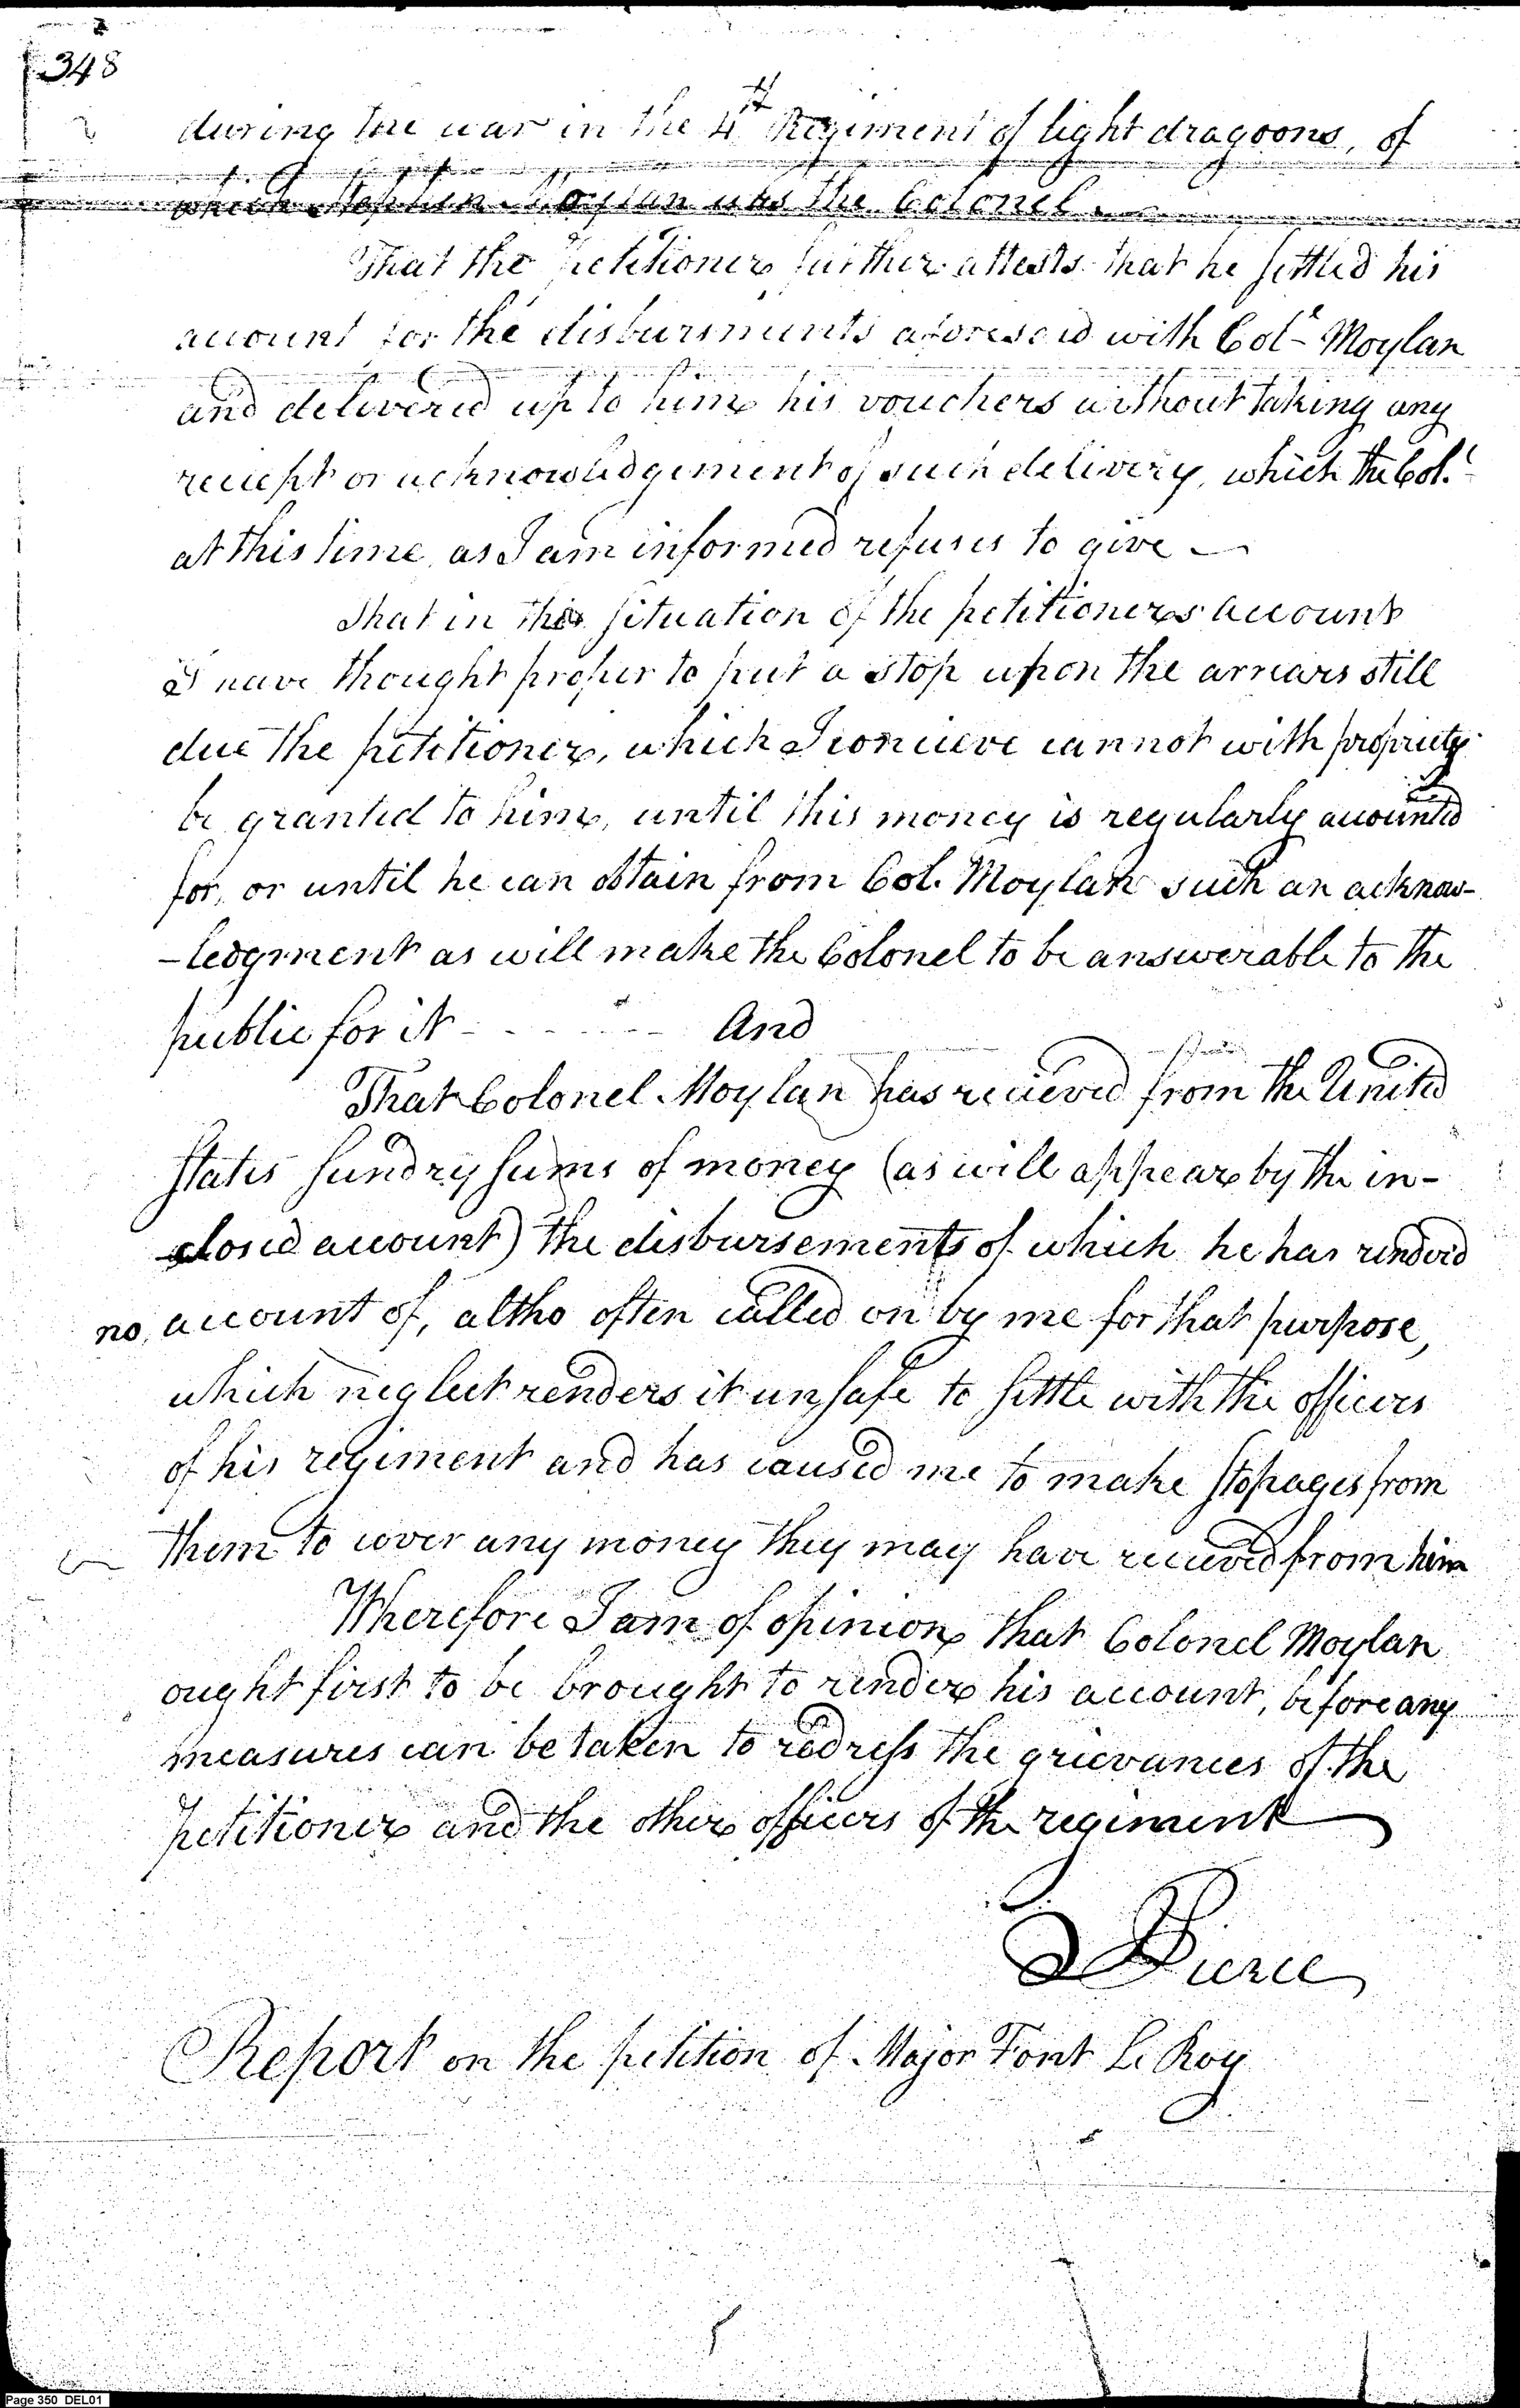 348
during the war in the 4th Regiment of light dragoons, of
which Stephen Moylan was the Colonel.
That the petitioner further attests that he settled his
account for the disbursments aforesaid with Col. Moylan
and delivered up to him his vouchers without taking any
reciept or acknowledgement of such delivery, which the Col.
at this time, as I am informed refuses to give —
That in this situation of the petitioners account
I have thought proper to put a stop upon the arrears still
due the petitioner, which I concieve cannot with propriety
be granted to him, until this money is regularly accounted
for, or until he can obtain from Col. Moylan such an acknow-
-ledgment as will make the Colonel to be answerable to the
public for it - - - - - - - And
That Colonel Moylan has recieved from the United
States sundry sums of money (as will appear by the in-
closed account) the disbursements of which he has renderd
no account of, altho often called on by me for that purpose,
which neglect renders it unsafe to settle with the officers
of his regiment and has caused me to make stopages from
them to cover any money they may have recieved from him
Wherefore I am of opinion that Colonel Moylan
ought first to be brought to render his account, before any
measures can be taken to redress the grievances of the
petitioner and the other officers of the regiment
Pierce
Report on the petition of Major Font Le Roy
Page 350 DEL01